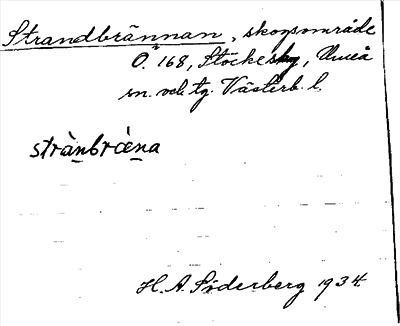 Strandbrännan, skogsområde
Ö. 168, Stöcksby, Umeå
sn. och tg. Västerb. l.
strànbrǽna
H. A. Söderberg 1934.